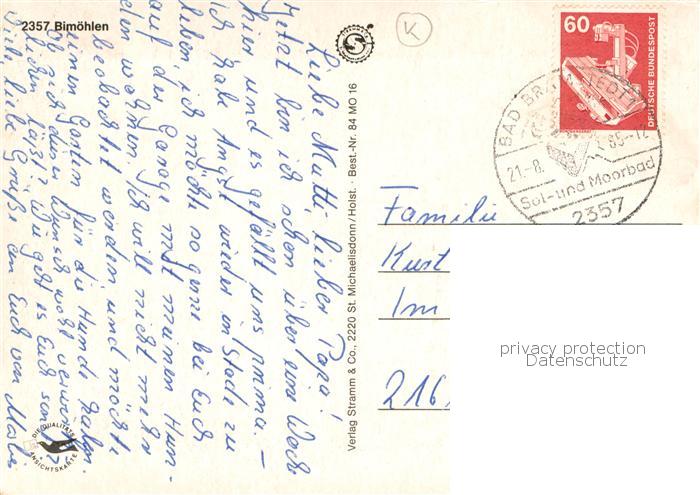 2357 Bimöhlen
Liebe Mutti, lieber Papa!
Jetzt bin ich schon über eine Woche
hier und es gefällt uns prima. –
Ich habe Angst wieder in Stade zu
leben ich möchte so gerne bei Euch
auf der Garage mit meinen Hun-
den wohnen. Ich will nicht mehr
beobachtet werden und möchte
einen Garten für die Hunde haben.
Ob sich dieser Wunsch wohl verwirk-
lichen läßt? Wie geht es Euch sonst?
Viele liebe Grüße an Euch von
DIE QUALITÄTS
ANSICHTSKARTE
Verlag Stramm & Co., 2220 St. Michaelisdonn/Holst. - Best.-Nr. 84 MO 16
K
60
DEUTSCHE BUNDESPOST
BAD BRAMSTEDT
21.-8. 85.-12
Sol- und Moorbad
2357
Familie
Kurt
Im
216
privacy protection
Datenschutz